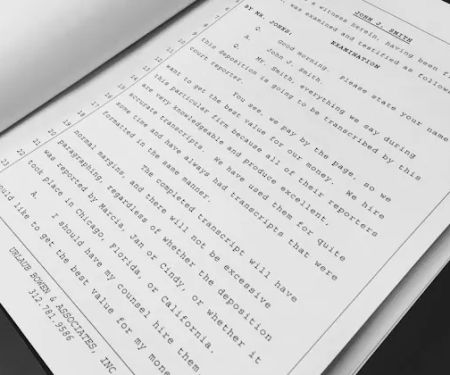 JOHN J. SMITH
a witness herein, having been
was examined and testified as
EXAMINATION
BY MR. JONES:
Q. Good morning. Please state your name
A. John J. Smith.
Q. Mr. Smith, everything we say during
this deposition is going to be transcribed by this
court reporter.
You see, we pay by the page, so we
want to get the best value for our money. We hire
this particular firm because all of their reporters
are very knowledgeable and produce excellent,
accurate transcripts. We have used them for quite
some time and have always had transcripts that were
formatted in the same manner.
The completed transcript will have
normal margins, and there will not be excessive
paragraphing, regardless of whether the deposition
was reported by Marcia, Jan or Cindy, or whether it
took place in Chicago, Florida, or California.
A. I should have my counsel hire them
would like to get the best value for my
URLAUB BOWEN & ASSOCIATES, INC
312.781.9586